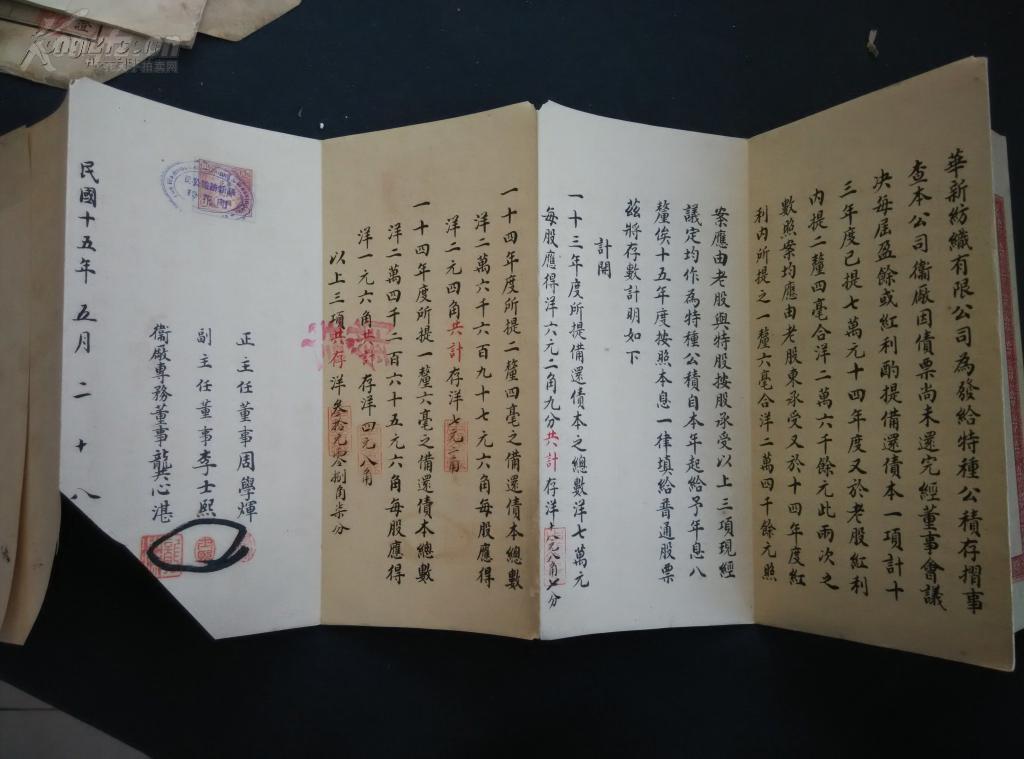 華新紡織有限公司為發給特種公積存摺事
查本公司衞廠因債票尚未還完經董事會議
決每屆盈餘或紅利酌提備還債本一項計十
三年度已提七萬元十四年度又於老股紅利
內提二釐四毫合洋二萬六千餘元此兩次之
數照案均應由老股東承受又於十四年度紅
利內所提之一釐六毫合洋二萬四千餘元照
案應由老股與特股按股承受以上三項現經
議定均作為特種公積自本年起給予年息八
釐俟十五年度按照本息一律填給普通股票
茲將存數計明如下
計開
一十三年度所提備還債本之總數洋七萬元
每股應得洋六元二角九分共計存洋十八元八角七分
一十四年度所提二釐四毫之備還債本總數
洋二萬六千六百九十七元六角每股應得
洋二元四角共計存洋七元二角
一十四年度所提一釐六毫之備還債本總數
洋二萬四千二百六十五元六角每股應得
洋一元六角共計存洋四元八角
以上三項共存洋叁拾元零捌角柒分
正主任董事周學煇
副主任董事李士熙
衞廠專務董事龔心湛
民國十五年五月二十八